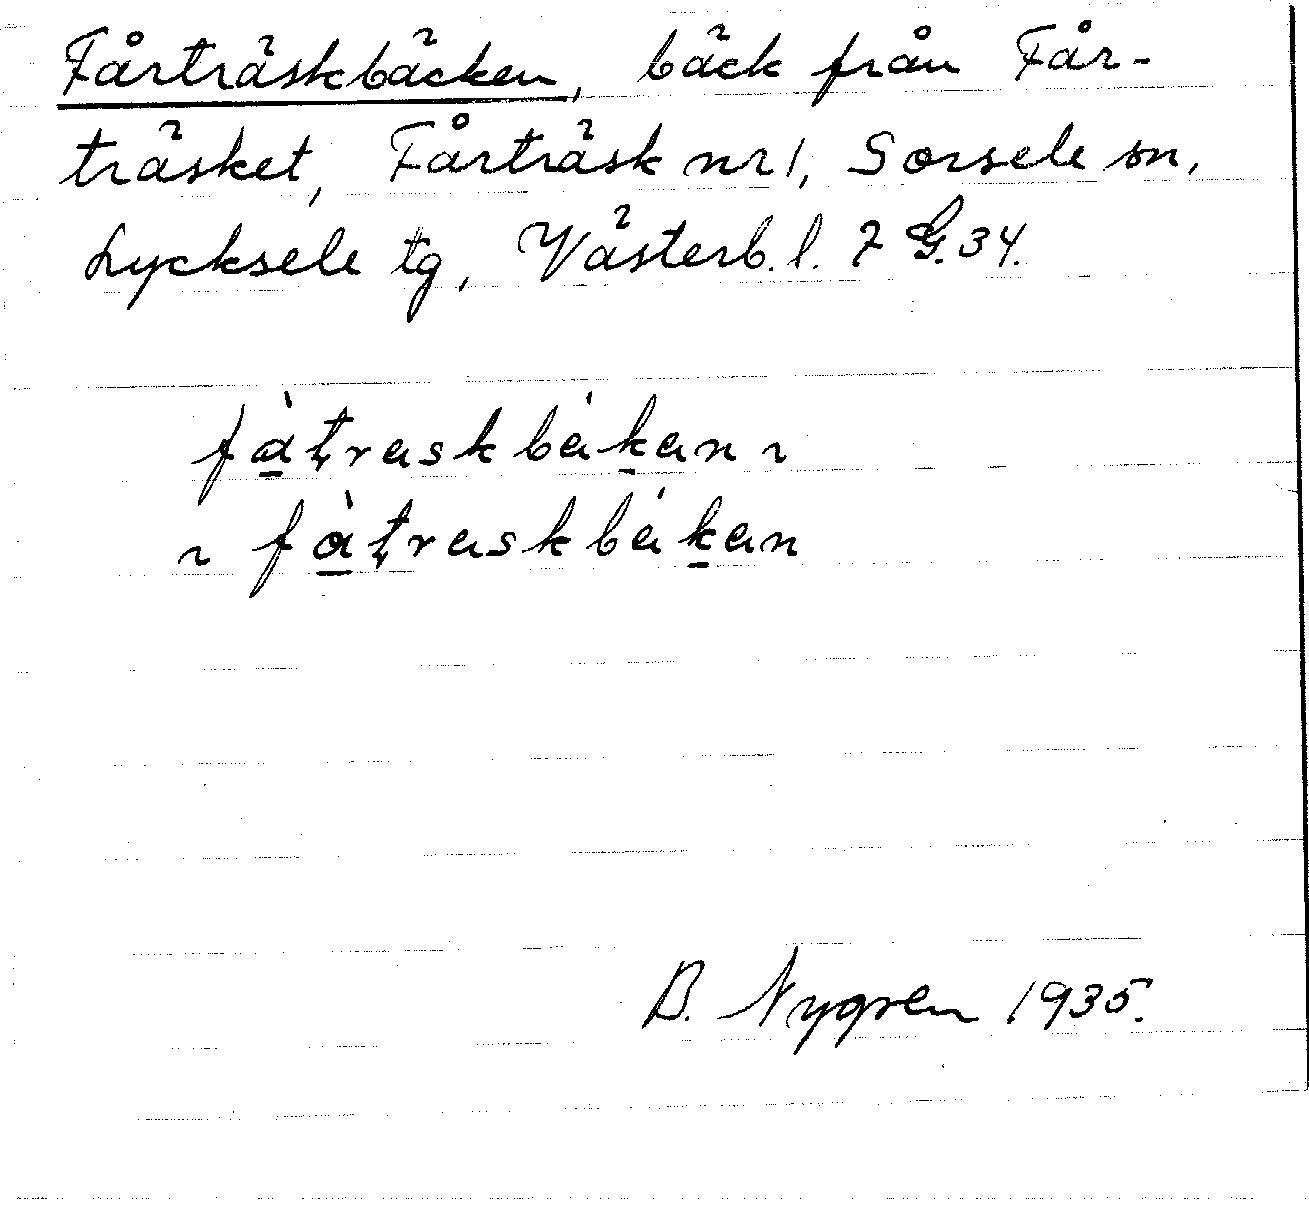 Fårträskbäcken, bäck från Får-
träsket, Fårträsk nr 1, Sorsele sn,
Lycksele tg, Västerb. l. 7 G. 34.
B. Nygren 1935.